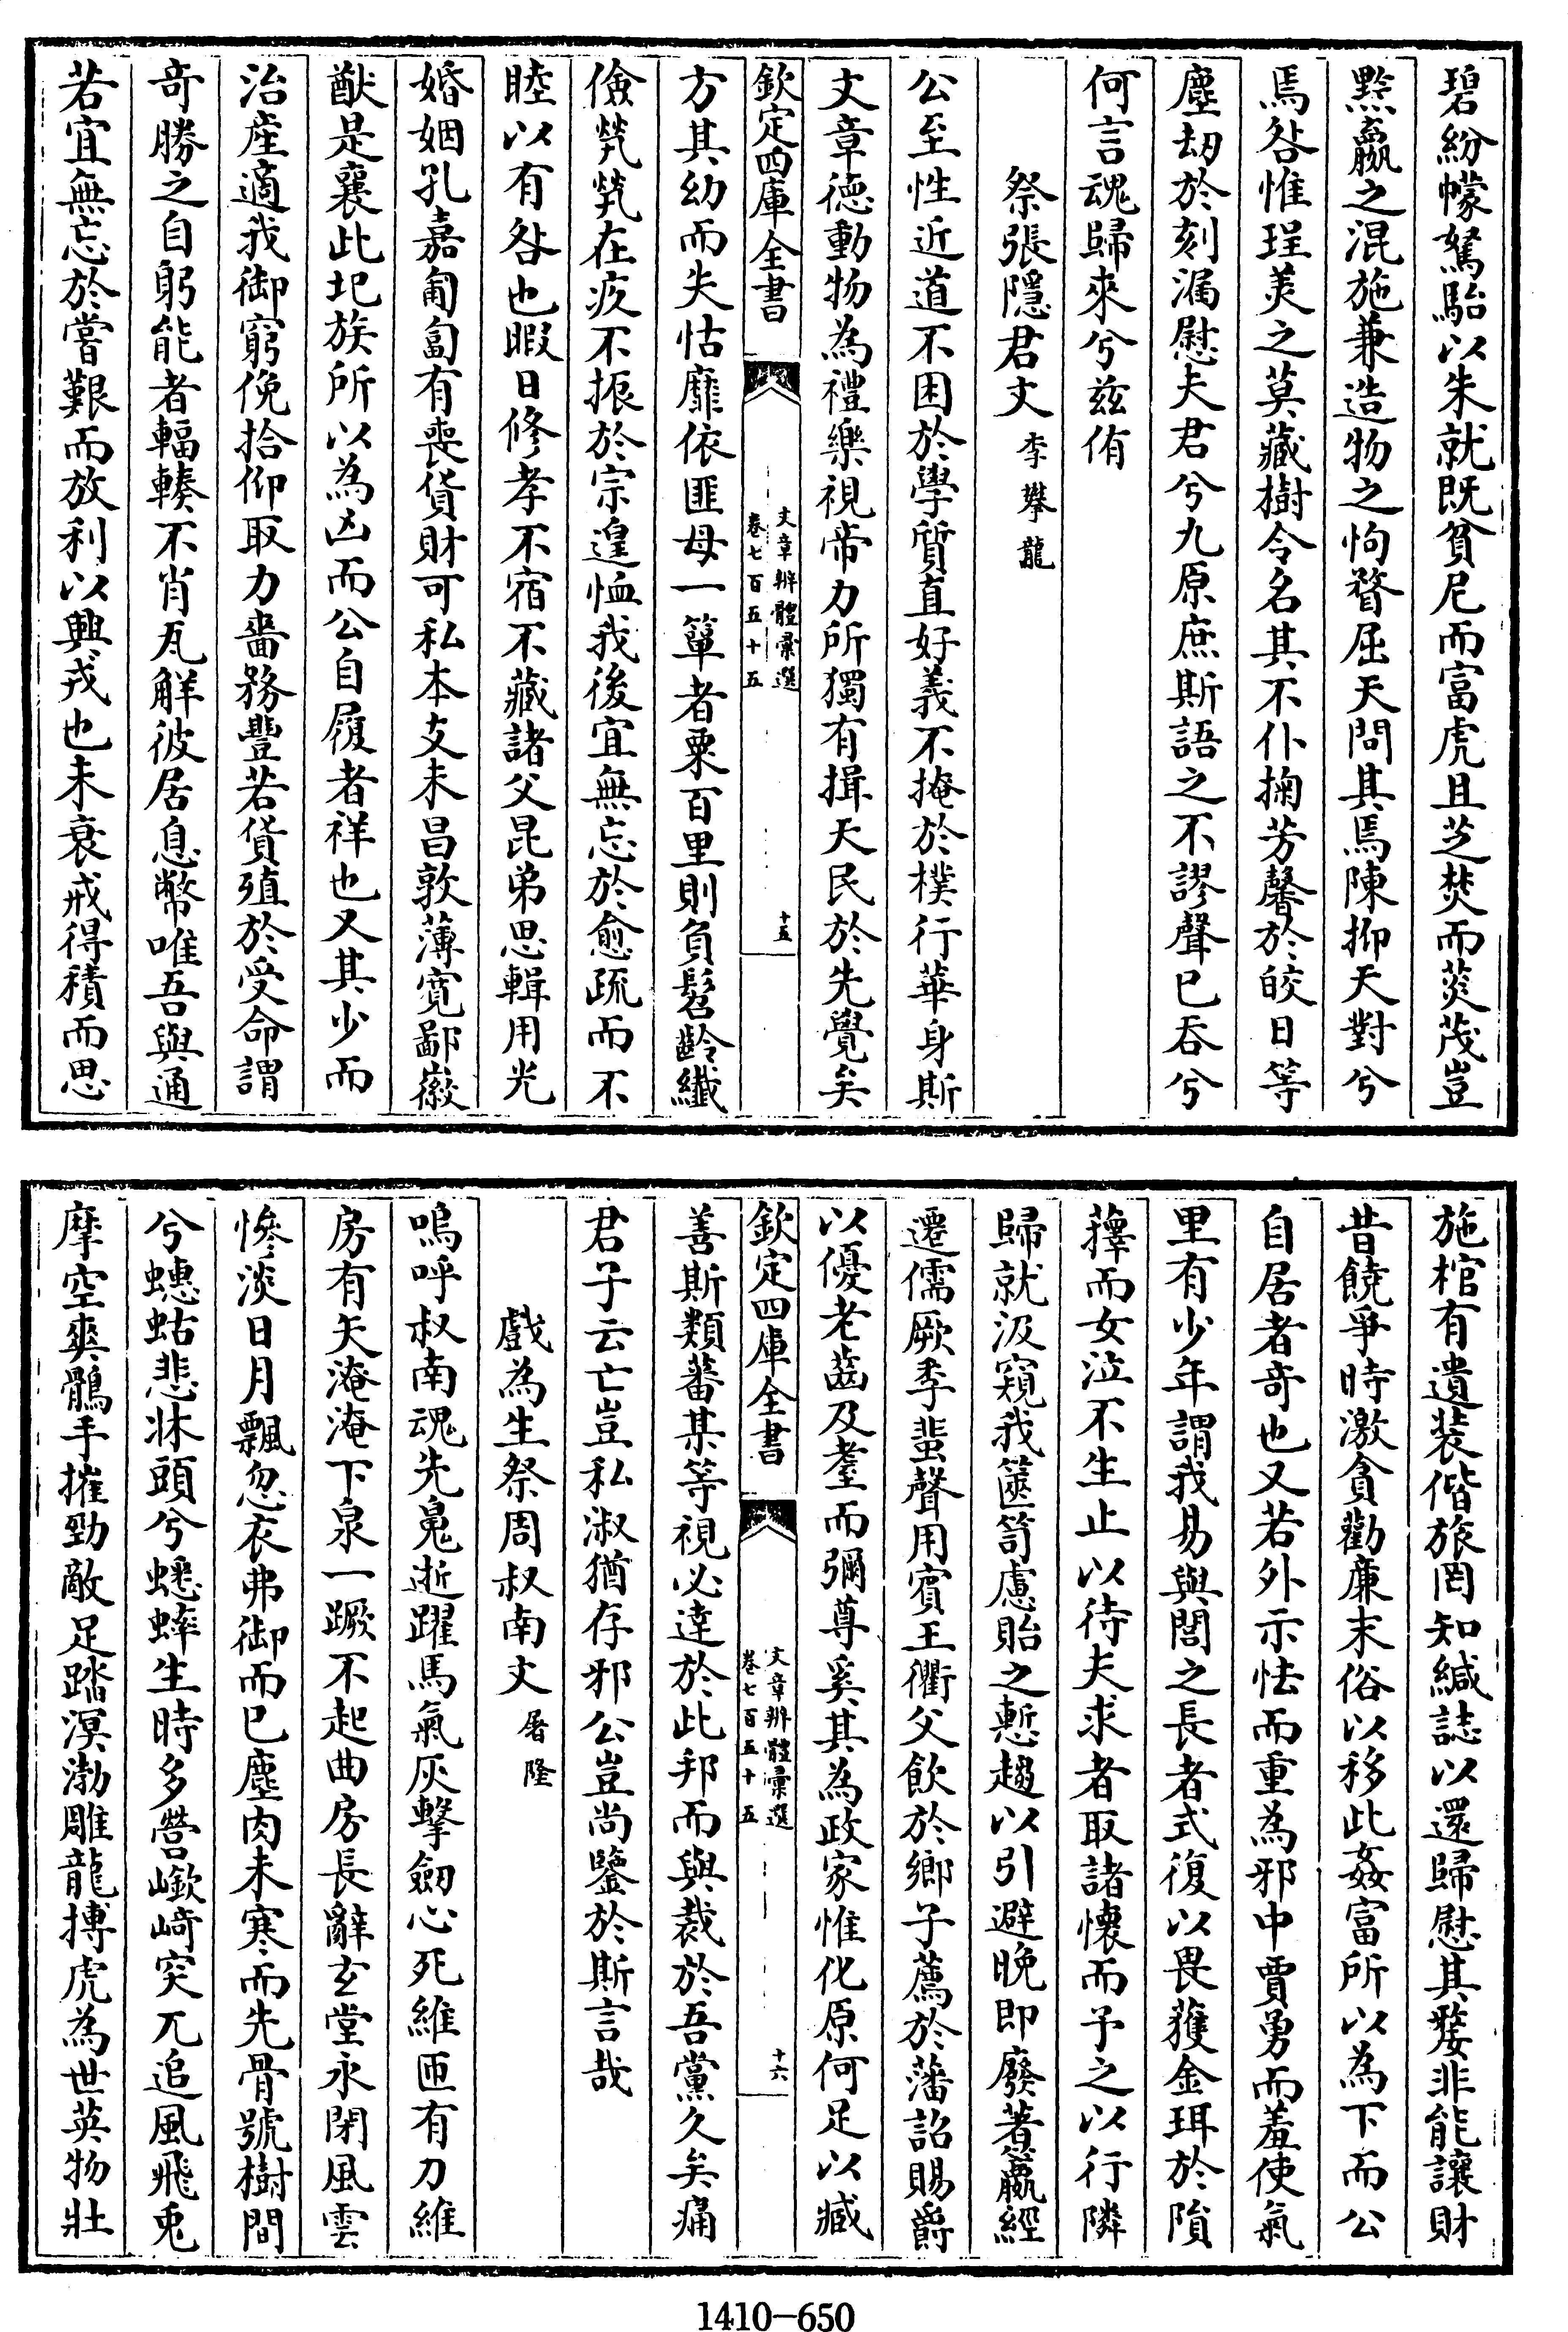 碧紛幪駑駘以朱就既貧尼而富虎且芝焚而莢茂豈
黙嬴之混施兼造物之恂瞀屈天問其焉陳抑天對兮
焉咎惟珵美之莫藏樹令名其不仆掬芳馨於皎日等
塵刼於刻漏慰夫君兮九原庶斯語之不謬聲已吞兮
何言魂歸來兮兹侑
祭張隱君文 李攀龍
公至性近道不困於學質直好義不掩於樸行華身斯
文章徳動物為禮樂視帝力所獨有揖天民於先覺矣
欽定四庫全書 文章辨體彚選 卷七百五十五 十五
方其幼而失怙靡依匪母一簞者粟百里則負髫齡纎
儉煢煢在疚不振於宗遑恤我後宜無忘於愈疏而不
睦以有咎也暇日修孝不宿不藏諸父昆弟思輯用光
婚姻孔嘉匍匐有喪貨財可私本支未昌敦薄寛鄙嶶
猷是襄此圯族所以為凶而公自履者祥也又其少而
治産適我御窮俛拾仰取力嗇務豐若貨殖於受命謂
竒勝之自躬能者輻輳不肖瓦解彼居息幣唯吾與通
若宜無忘於嘗艱而放利以興戎也未衰戒得積而思
施棺有遺装偕旅罔知緘誌以還歸慰其嫠非能讓財
昔饒爭時激貪勸廉末俗以移此姦富所以為下而公
自居者竒也又若外示怯而重為邪中賈勇而羞使氣
里有少年謂我易與閭之長者式復以畏蕿金珥於隕
蘀而女泣不生止以待夫求者取諸懷而予之以行隣
歸就汲窺我篋笥慮貽之慙趨以引避晚即廢著籯經
遷儒厥季蜚聲用賔王衢父飲於鄉子薦於藩詔賜爵
以優老齒及耋而彌尊奚其為政家惟化原何足以臧
欽定四庫全書 文章辨體彚選 卷七百五十五 十六
善斯類蕃某等視必達於此邦而與裁於吾黨久矣痛
君子云亡豈私淑猶存邪公豈尚鑒於斯言哉
戲為生祭周叔南文 屠隆
嗚呼叔南魂先鬼逝躍馬氣灰擊劒心死維匣有刀維
房有矢淹淹下泉一蹶不起曲房長辭玄堂永閉風雲
慘淡日月飄忽衣弗御而已塵肉未寒而先骨號樹間
兮蟪蛄悲牀頭兮蟋蟀生時多嵤嶔﨑突兀追風飛兎
摩空爽鶻手摧勁敵足踏溟渤雕龍搏虎為世英物壯
1410-650